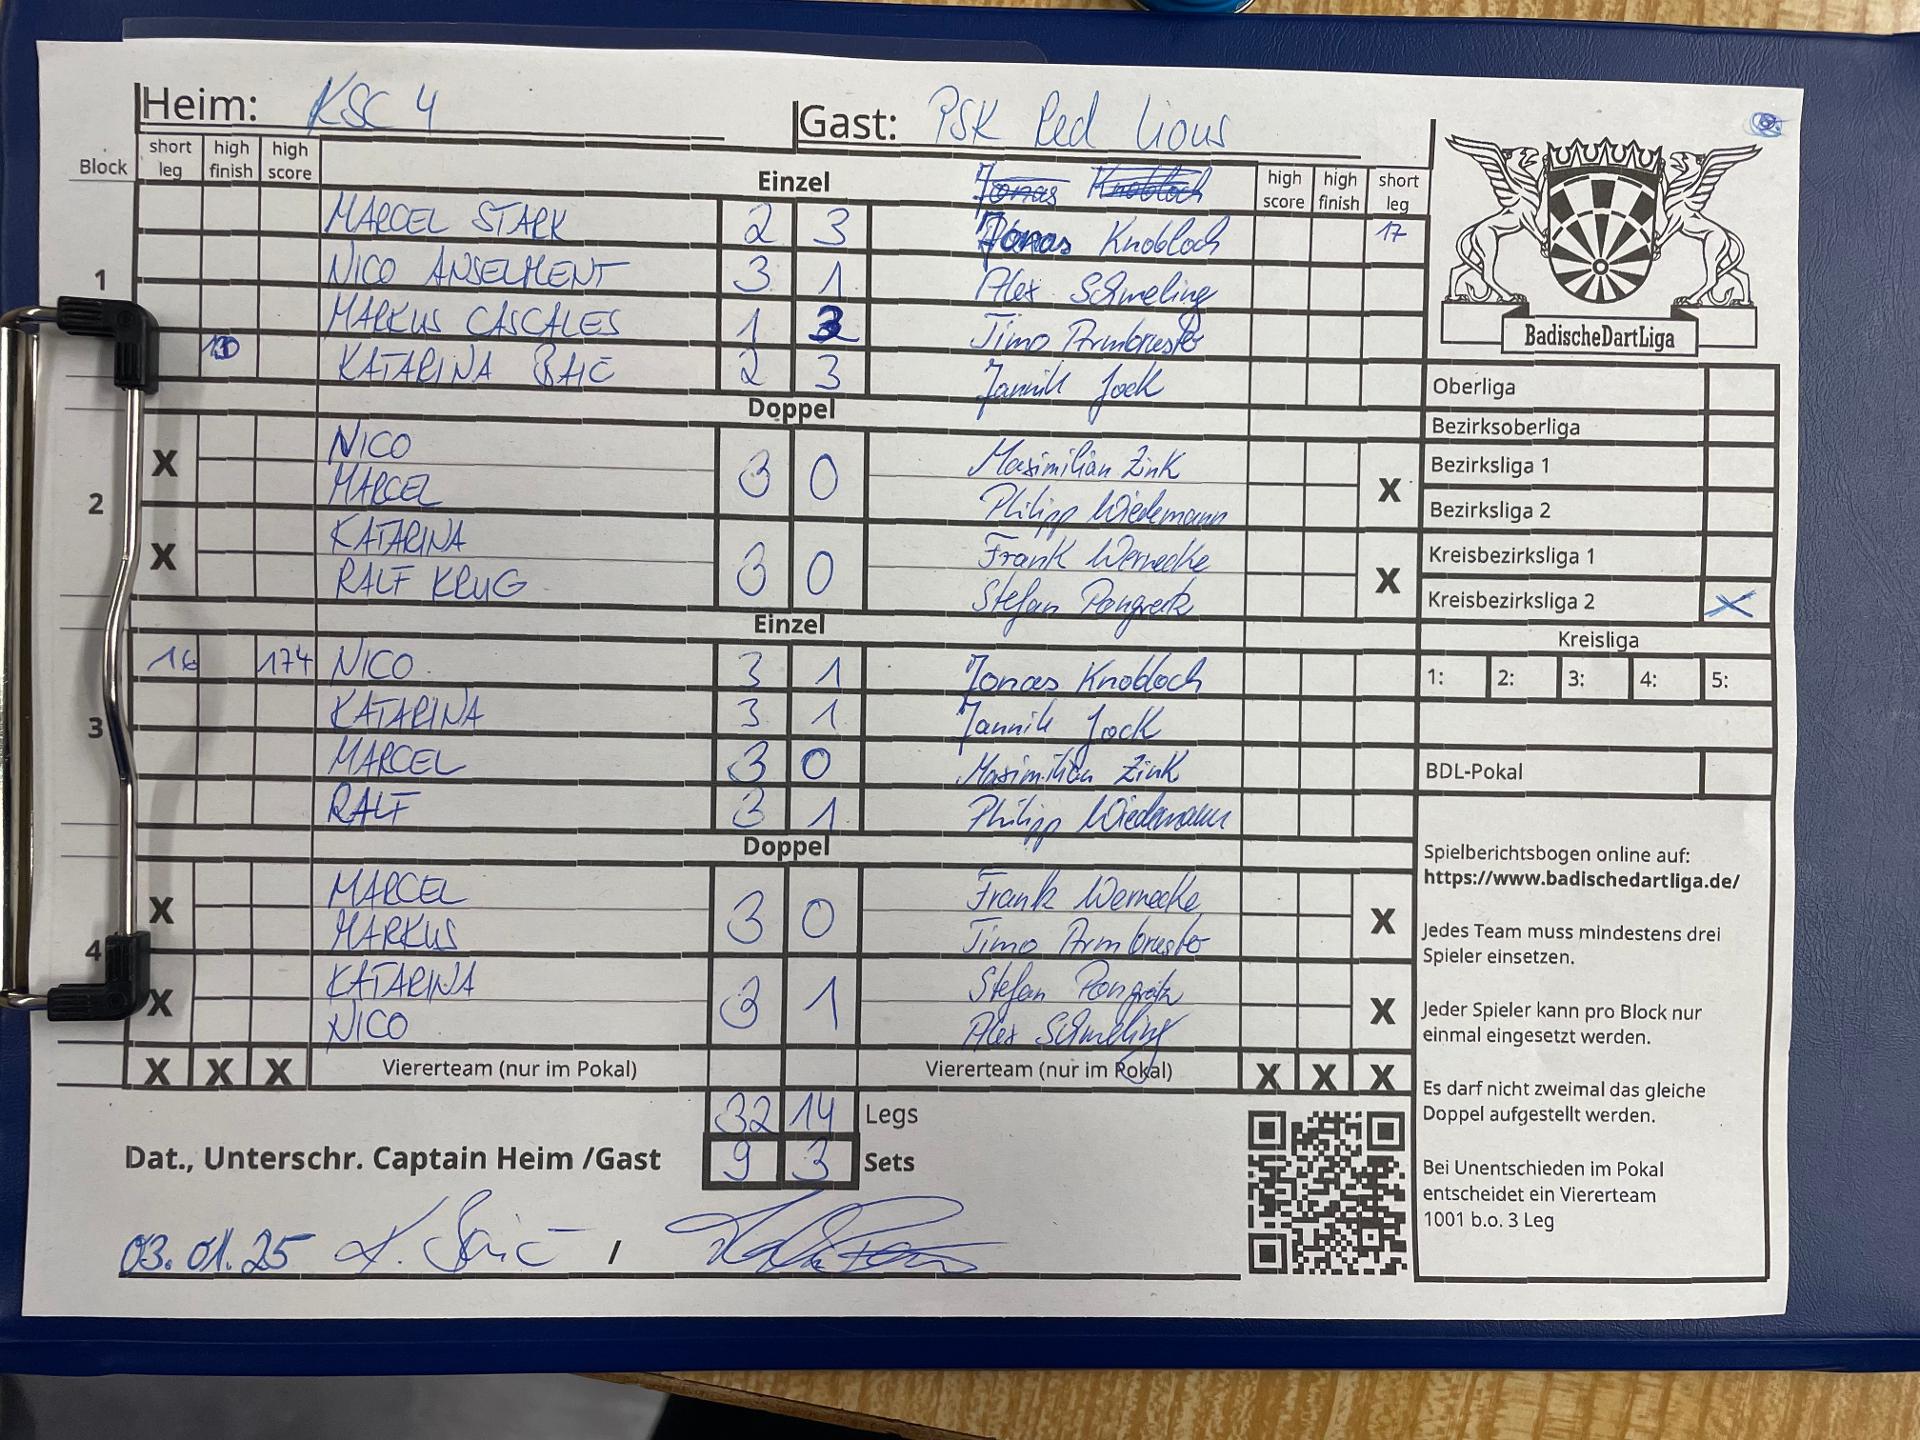 Heim: KSC 4 Gast: PSK Red Lions
Block short leg high finish high score Einzel Jonas Knobloch high score high finish short leg
1
MARCEL STARK 2 3 Jonas Knobloch 17
NICO ANSELMENT 3 1 Alex Schmeling
MARKUS CASCALES 1 3 Timo Armbruster
KATARINA BAIĆ 2 3 Jannik Jock
Doppel
2
X NICO 3 0 Maximilian Zink X
MARCEL Philipp Wiedemann
X KATARINA 3 0 Frank Wernecke X
RALF KRUG Stefan Pongratz
Einzel
3
16 174 NICO 3 1 Jonas Knobloch
KATARINA 3 1 Jannik Jock
MARCEL 3 0 Maximilian Zink
RALF 3 1 Philipp Wiedemann
Doppel
4
X MARCEL 3 0 Frank Wernecke X
MARKUS Timo Armbruster
X KATARINA 3 1 Stefan Pongratz X
NICO Alex Schmeling
X X X Viererteam (nur im Pokal) Viererteam (nur im Pokal) X X X
32 14 Legs
9 3 Sets
Dat., Unterschr. Captain Heim /Gast
03.01.25 K. Baić /
BadischeDartLiga
Oberliga
Bezirksoberliga
Bezirksliga 1
Bezirksliga 2
Kreisbezirksliga 1
Kreisbezirksliga 2 X
Kreisliga
1: 2: 3: 4: 5:
BDL-Pokal
Spielberichtsbogen online auf:
https://www.badischedartliga.de/
Jedes Team muss mindestens drei
Spieler einsetzen.
Jeder Spieler kann pro Block nur
einmal eingesetzt werden.
Es darf nicht zweimal das gleiche
Doppel aufgestellt werden.
Bei Unentschieden im Pokal
entscheidet ein Viererteam
1001 b.o. 3 Leg